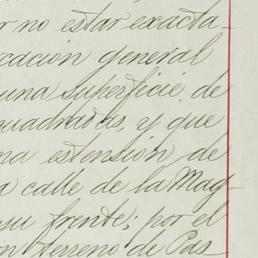 r no estar exacta-
cacion general
una superficie de
cuadradas, y que
na estensión de
a calle de la Mag-
su frente; por el
n terreno de Pas-